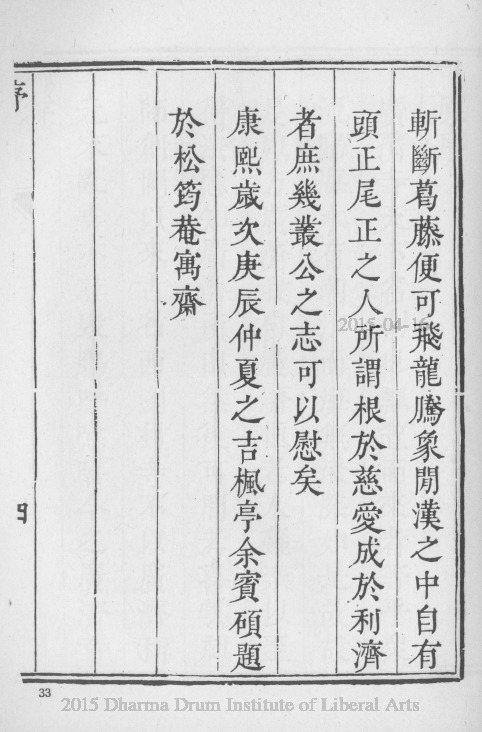 斬斷葛藤便可飛龍騰象閒漢之中自有
頭正尾正之人所謂根於慈愛成於利濟
者庶幾叢公之志可以慰矣
康熙歲次庚辰仲夏之吉楓亭余賓碩題
於松筠菴寓齋
序
四
2015-04-16
33
2015 Dharma Drum Institute of Liberal Arts